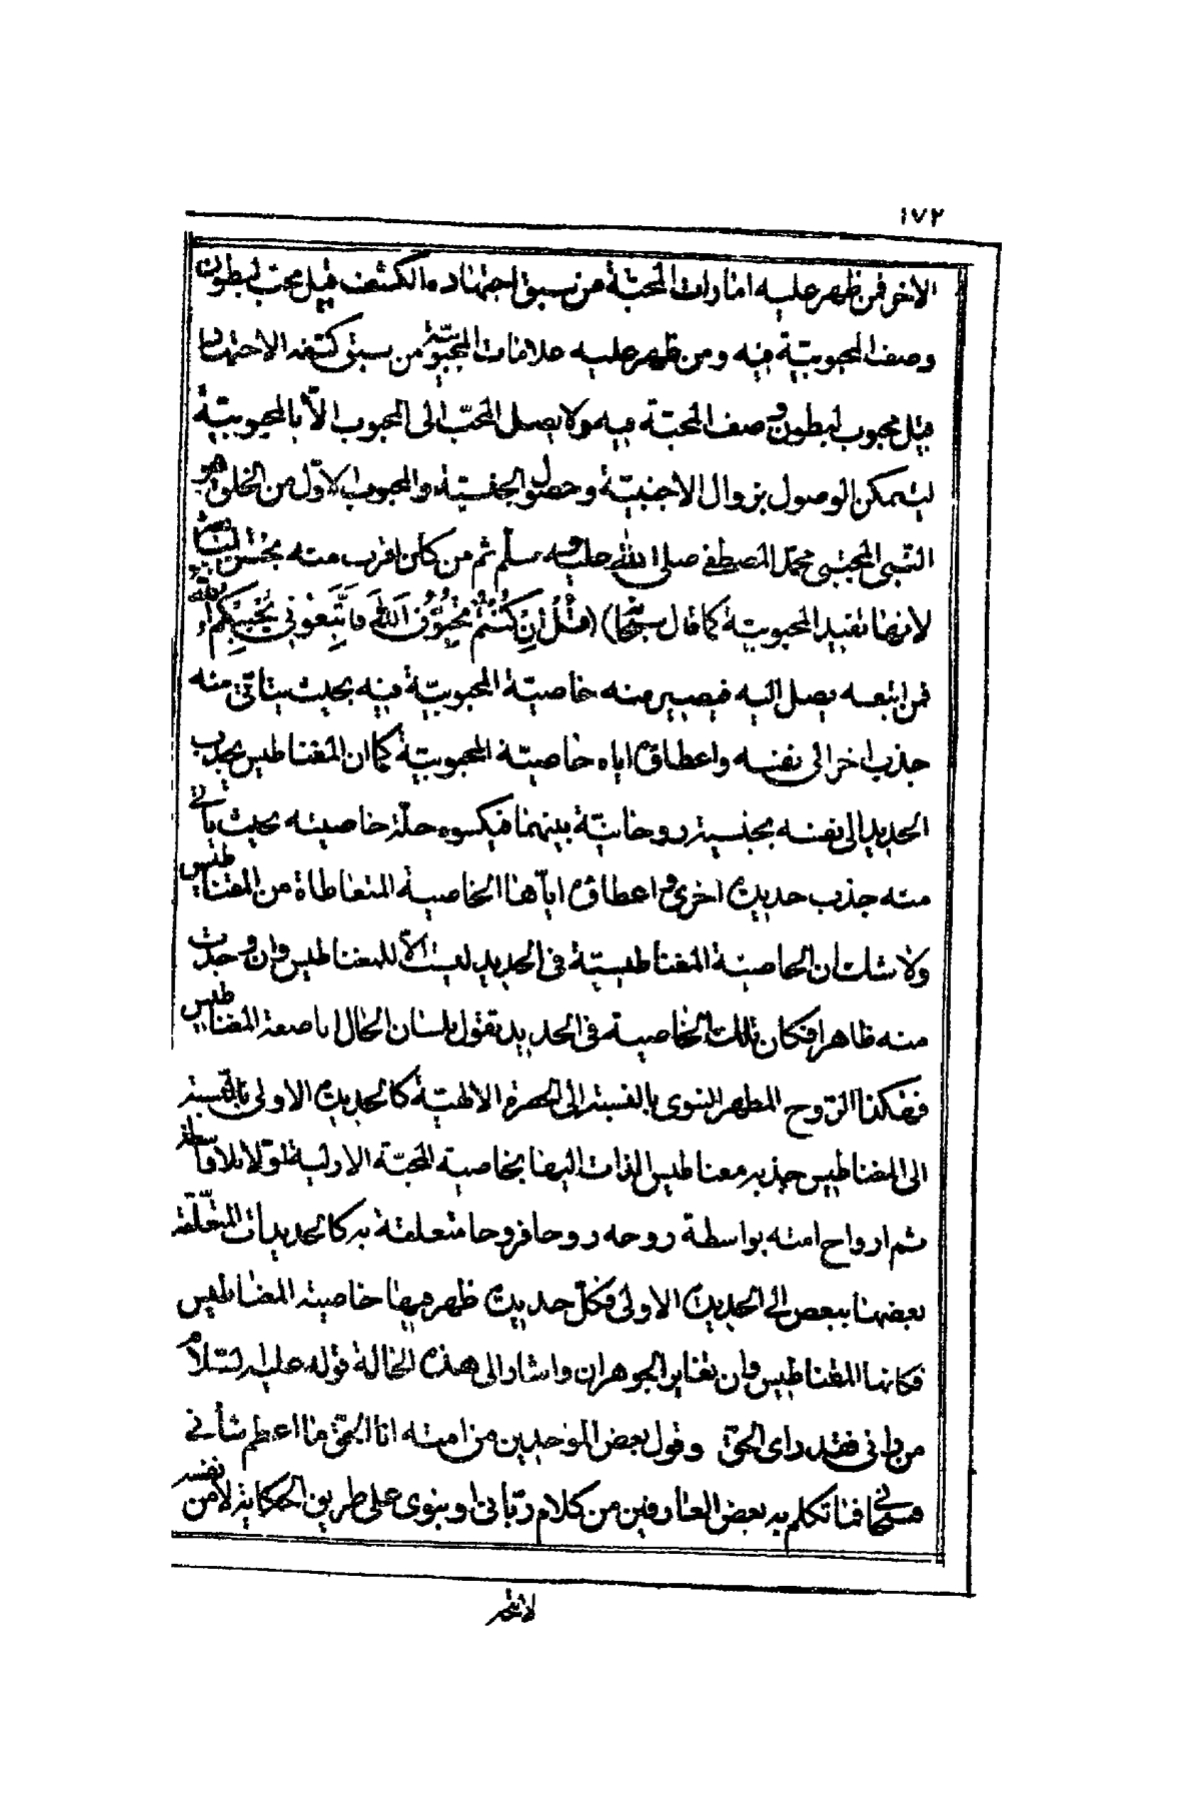 ١٧٢
الاخر فمن ظهر عليه امارات المحبّة من سبق اجتهاده الكشف قيل محبّ لبطون
وصف المحبوبيّة فيه ومن ظهر عليه علامات المحبوبيّة من سبق كشفه الاجتهاد
قيل محبوب لبطون وصف المحبّة فيه ولا يصل المحبّ الى المحبوب الّا بالمحبوبيّة
ليتمكن الوصول بزوال الاجنبيّة وحصول الجنسيّة والمحبوب الاوّل من الخلق هو
النّبى المجتبى محمّد المصطفى صلى الله عليه وسلّم ثم من كان اقرب منه بحسن المتابعة
لانها تفيد المحبوبيّة كما قال سبحانه (قُلْ اِنْ كُنْتُمْ تُحِبُّونَ اللهَ فَاتَّبِعُونِى يُحْبِبْكُمُ اللهُ)
فمن اتبعه يصل اليه فيصير منه خاصيّة المحبوبيّة فيه بحيث يتاتّى منه
جذب اخر الى نفسه واعطاؤه اياه خاصيّة المحبوبيّة كما ان المغناطيس يجذب
الحديد الى نفسه بجنسية روحانيّة بينهما فيكسوه حلّة خاصيته بحيث يأتى
منه جذب حديدة اخرى واعطاؤه ايّاها الخاصية المتعاطاة من المغناطيس
ولا شك ان الخاصيّة المغناطيسيّة فى الحديد ليست الّا للمغناطيس وان وجدت
منه ظاهرا فكان تلك الخاصية فى الحديد يقول بلسان الحال انا صفة المغناطيس
فهكذا الرّوح المطهر النبوى بالنسبة الى الحضرة الالهيّة كالحديدة الاولى بالنّسبة
الى المغناطيس جذبه مغناطيس الذات اليها بخاصية المحبّة الازلية اوّلا بلا واسطة
ثم ارواح امته بواسطة روحه روحا فروحا متعلقة به كالحديدات المتعلّقة
بعضها ببعض الى الحديدة الاولى فكلّ حديدة ظهر فيها خاصية المغناطيس
فكانها المغناطيس وان تغاير الجوهران واشار الى هذه الحالة قوله عليه السّلام
من رانى فقد راى الحقّ وقول بعض الموحدين من امته انا الحقّ ما اعظم شأنى
سبحانى فما تكلم به بعض العارفين من كلام ربّانى او نبوى على طريق الحكاية لا من نفسه